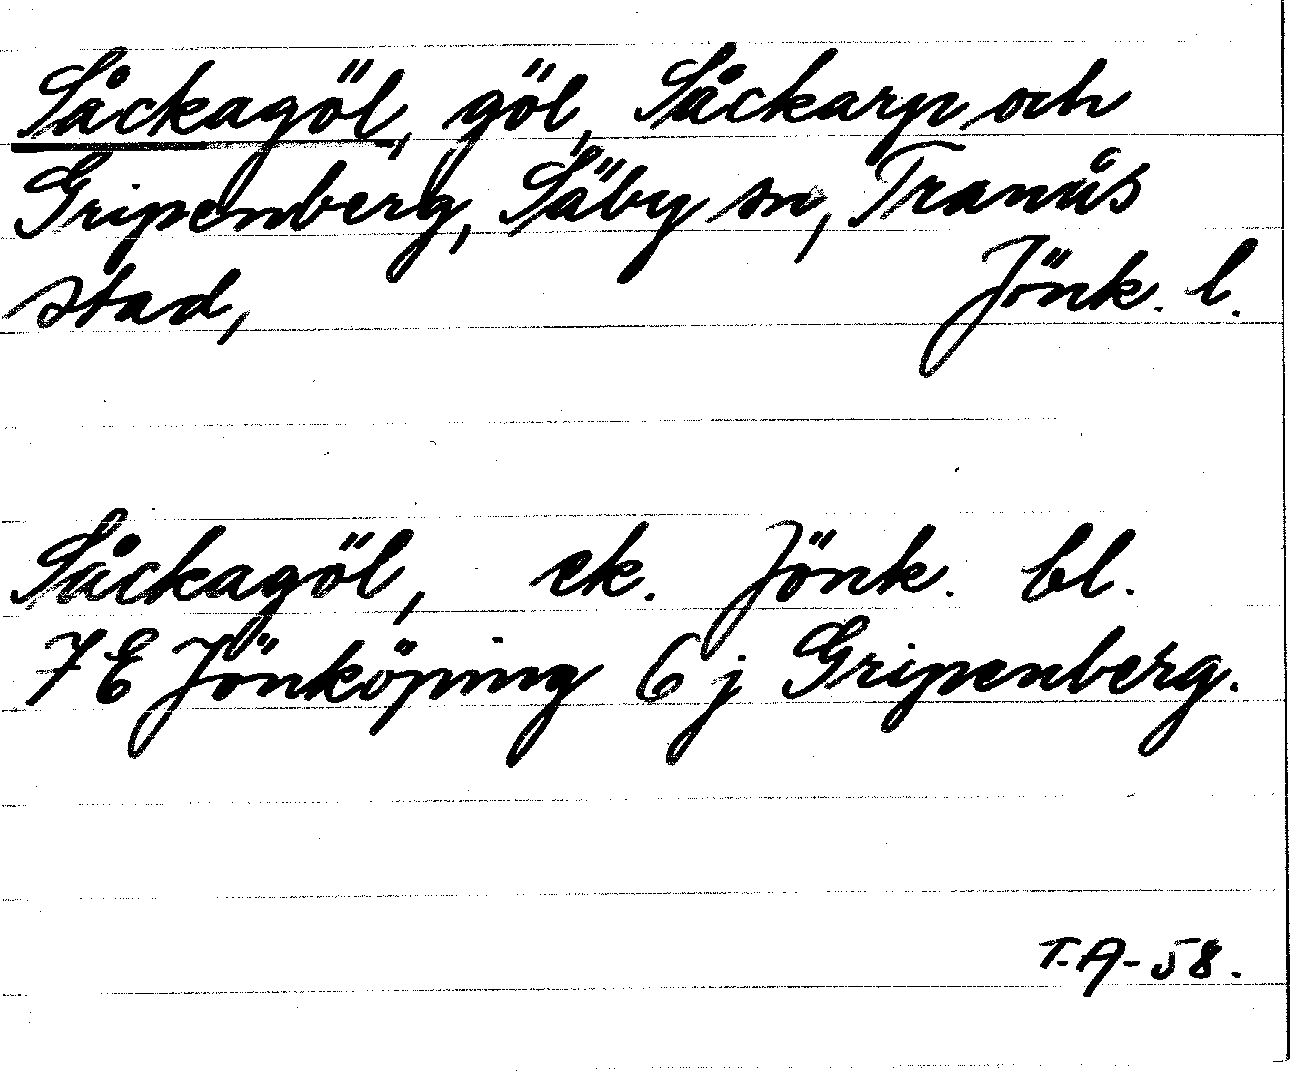 Såckagöl, göl, Såckarp och
Gripenberg, Säby sn, Tranås
stad, Jönk. l.
Såckagöl, ek. Jönk. bl.
7 E Jönköping 6 j Gripenberg.
T.A-58.